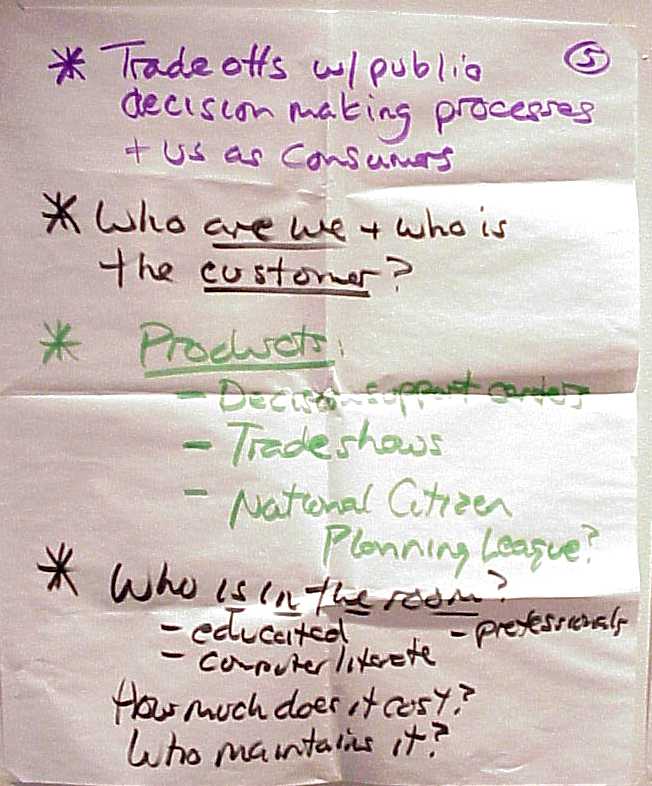 * Trade offs w/ public
5
decision making processes
+ us as consumers
* Who are we + who is
the customer?
* Products:
- Decision support centers
- Tradeshows
- National Citizen
Planning League?
* Who is in the room?
- educated - professionals
- computer literate
How much does it cost?
Who maintains it?